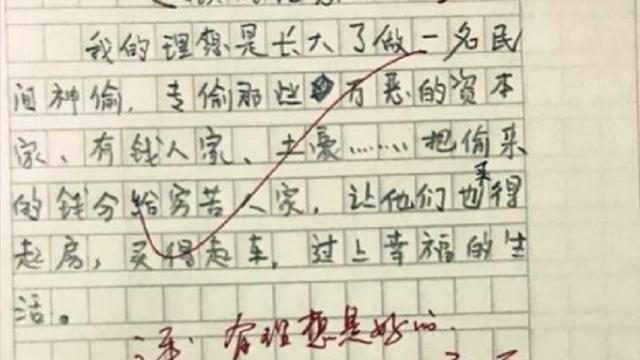 我的理想是长大了做一名民
间神偷，专偷那些万恶的资本
家、有钱人家、土豪……把偷来
的钱分给穷苦人家，让他们也买得
起房，买得起车，过上幸福的生
活。
有理想是好的